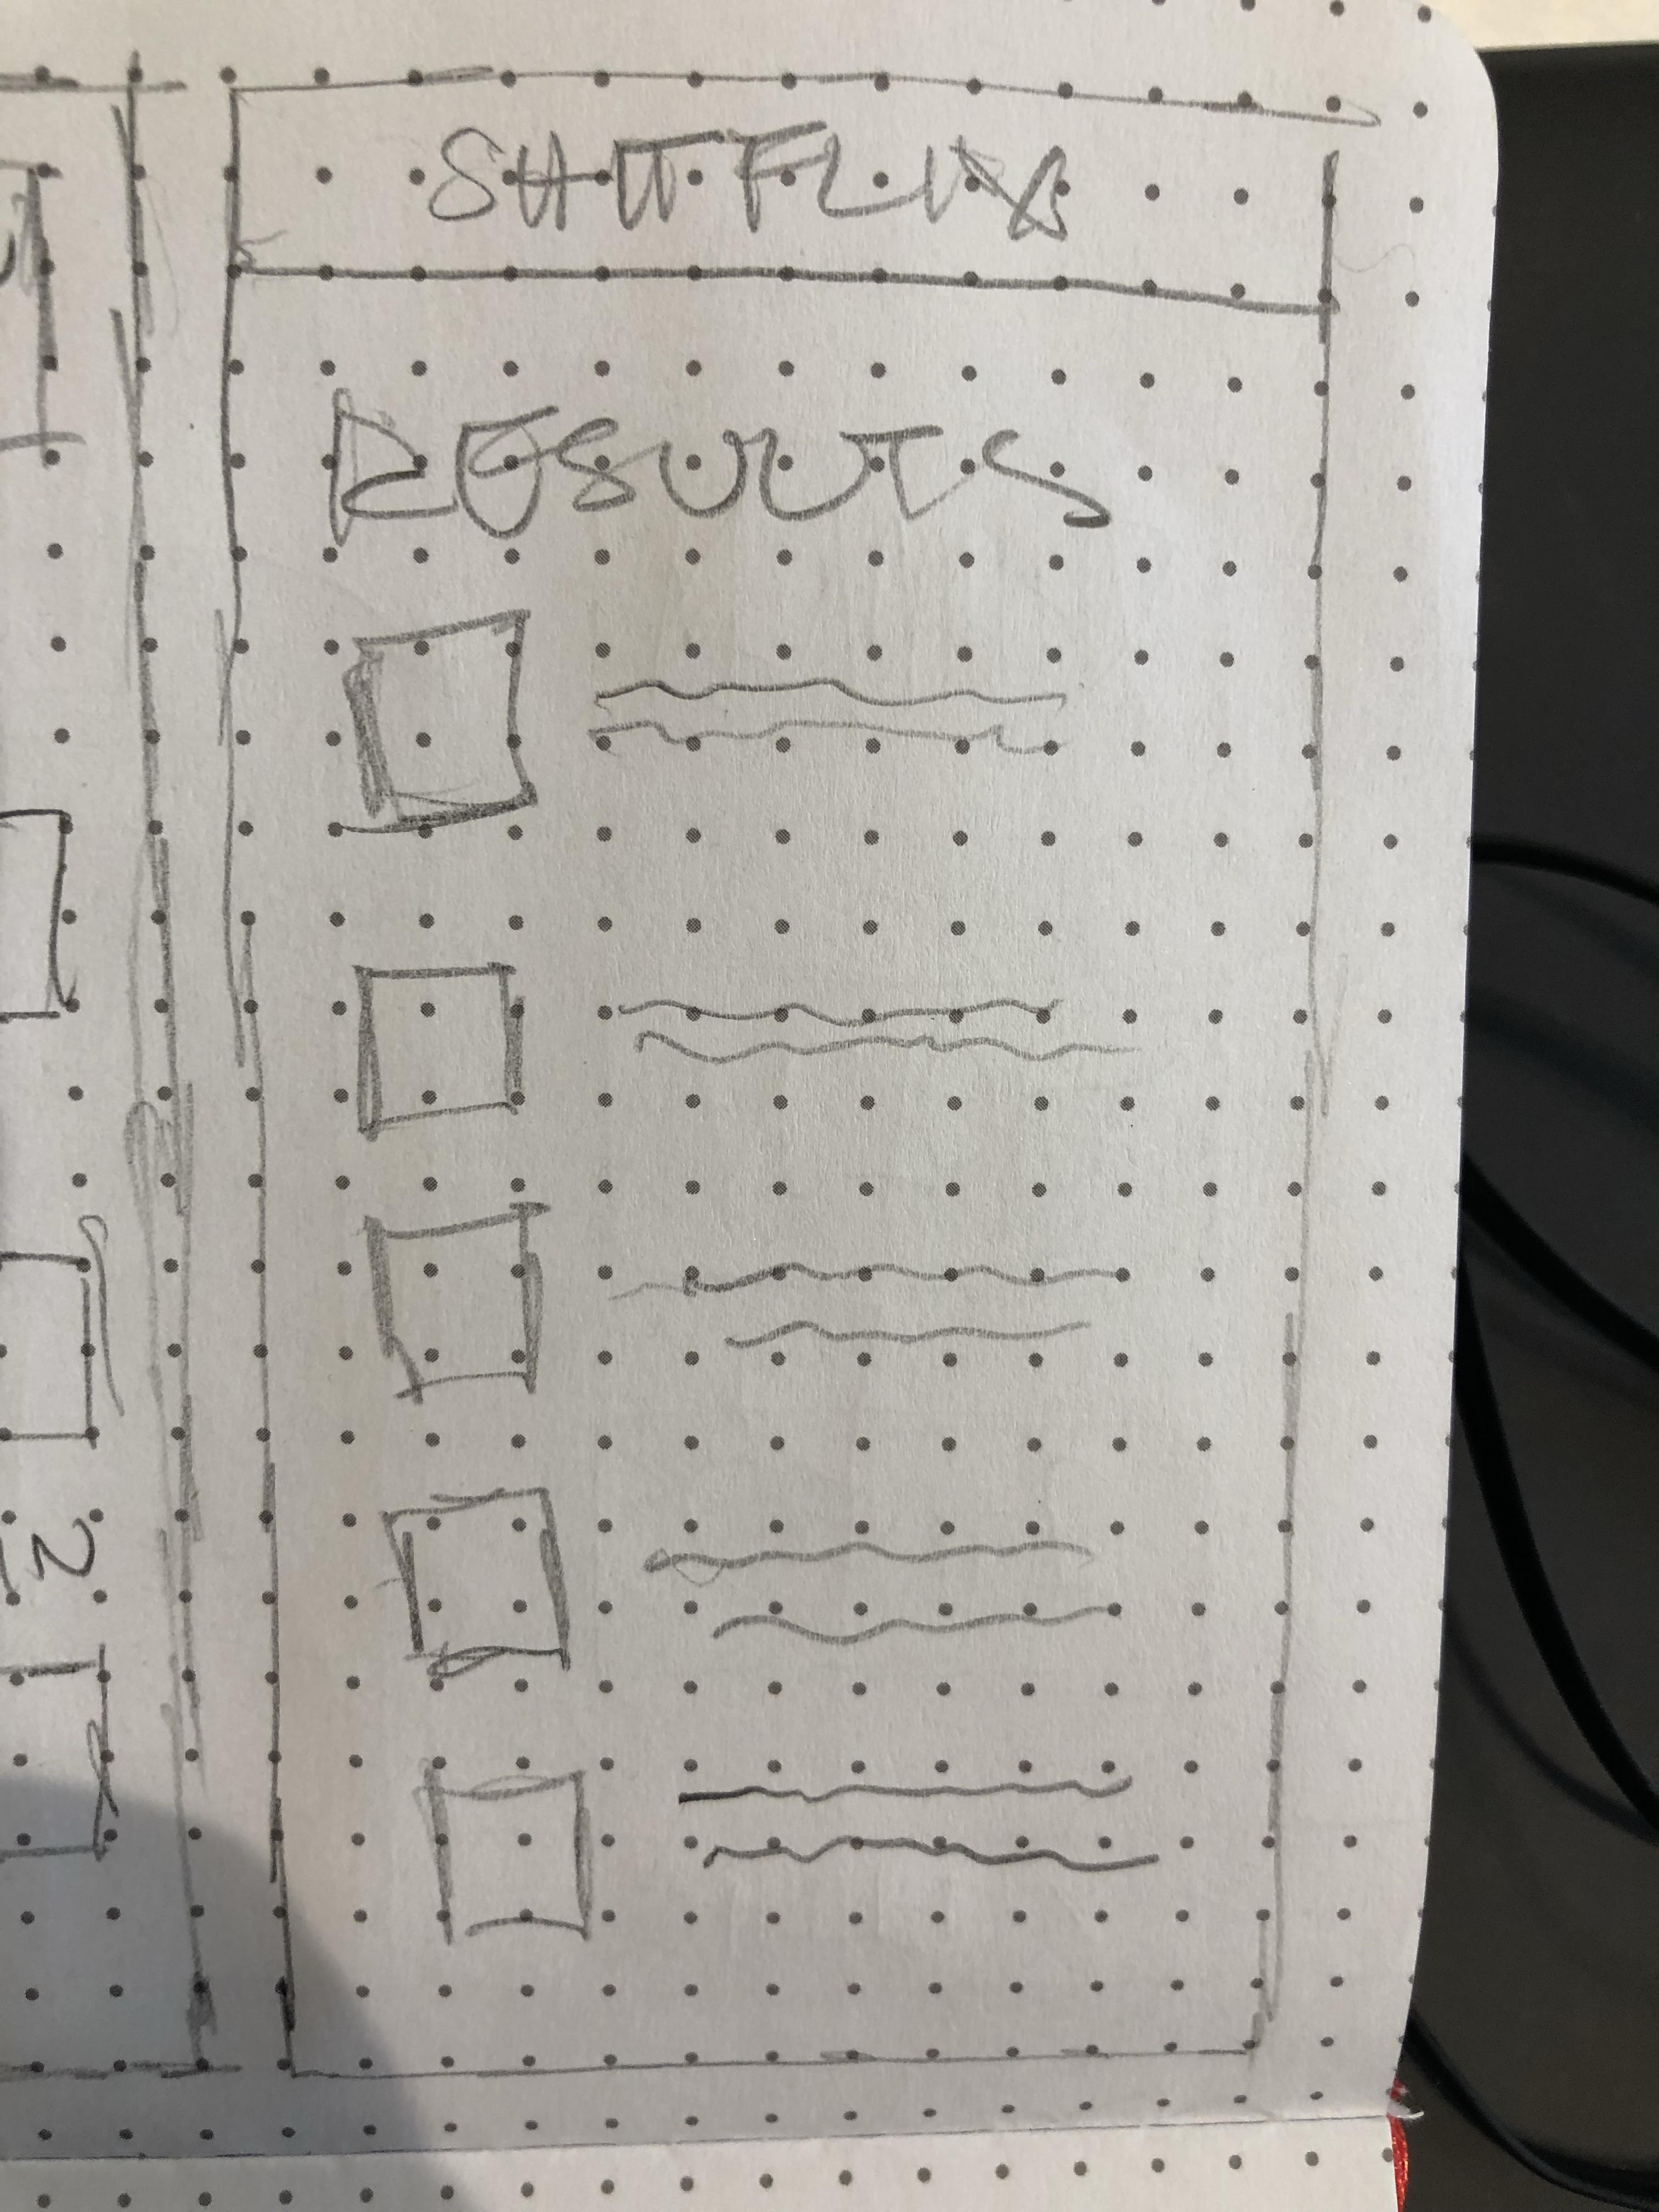 SHITFLIX
RESULTS